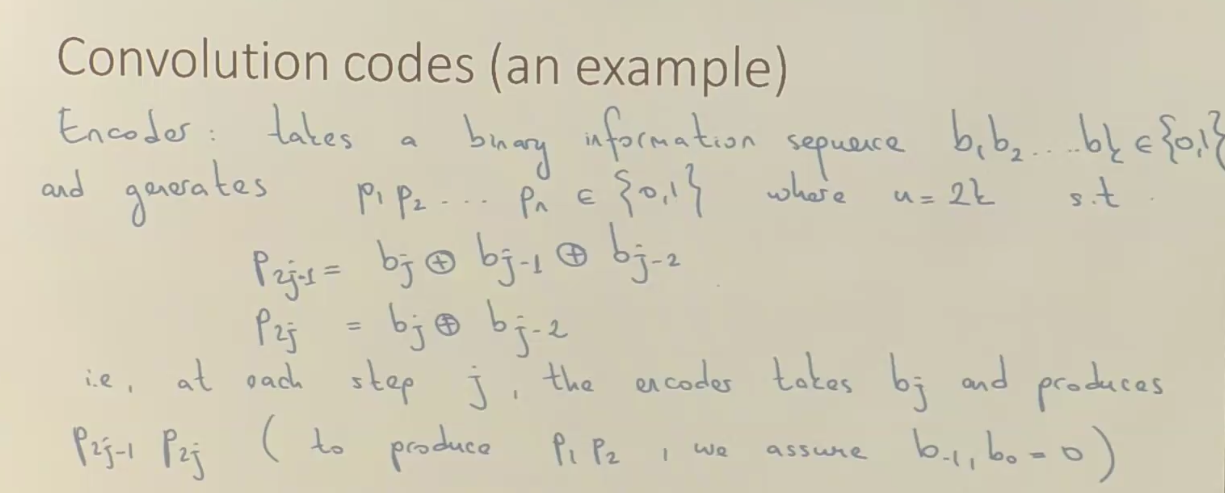 Convolution codes (an example)
Encoder: takes a binary information sequence b₁b₂....bk ∈ {0,1}
and generates p₁ p₂ ... pₙ ∈ {0,1} where n = 2k s.t.
p₂ⱼ₋₁ = bⱼ ⊕ bⱼ₋₁ ⊕ bⱼ₋₂
p₂ⱼ = bⱼ ⊕ bⱼ₋₂
i.e, at each step j, the encoder takes bⱼ and produces
p₂ⱼ₋₁ p₂ⱼ ( to produce p₁ p₂ , we assume b₋₁, b₀ = 0 )